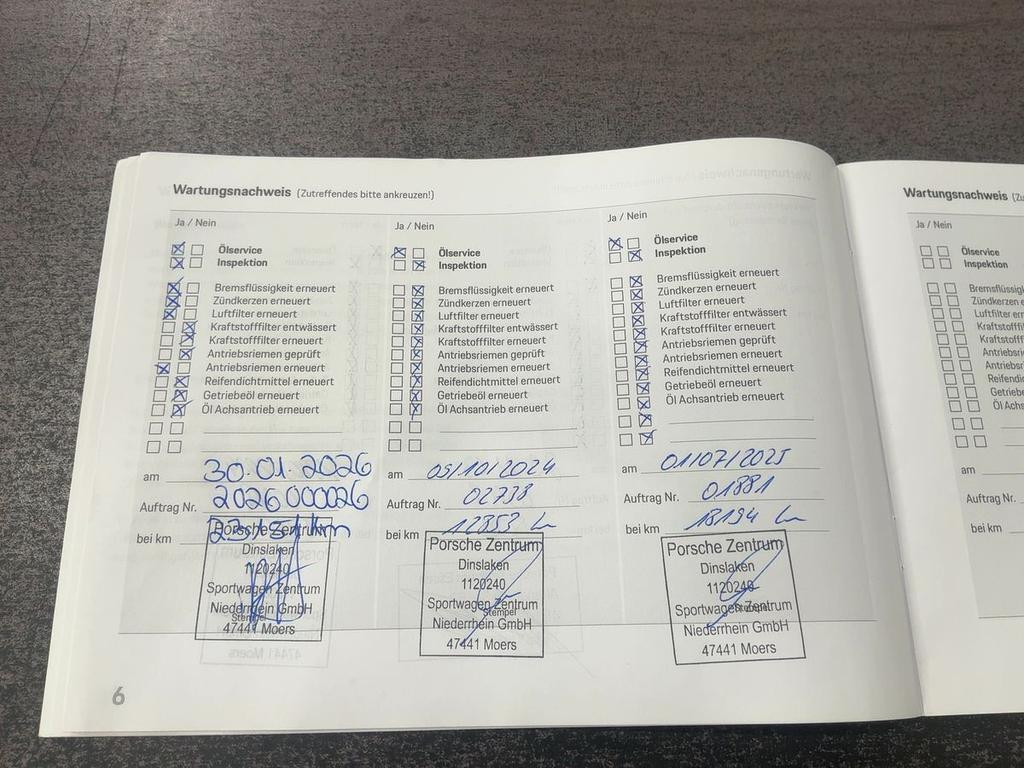 Wartungsnachweis (Zutreffendes bitte ankreuzen!)
Ja / Nein
Ölservice
Inspektion
Bremsflüssigkeit erneuert
Zündkerzen erneuert
Luftfilter erneuert
Kraftstofffilter entwässert
Kraftstofffilter erneuert
Antriebsriemen geprüft
Antriebsriemen erneuert
Reifendichtmittel erneuert
Getriebeöl erneuert
Öl Achsantrieb erneuert
am 30.01.2026
Auftrag Nr. 2026000026
bei km
Porsche Zentrum
Dinslaken
1120240
Sportwagen Zentrum
Stempel
Niederrhein GmbH
47441 Moers
Ja / Nein
Ölservice
Inspektion
Bremsflüssigkeit erneuert
Zündkerzen erneuert
Luftfilter erneuert
Kraftstofffilter entwässert
Kraftstofffilter erneuert
Antriebsriemen geprüft
Antriebsriemen erneuert
Reifendichtmittel erneuert
Getriebeöl erneuert
Öl Achsantrieb erneuert
am /10/2024
Auftrag Nr. 02738
bei km 12853 km
Porsche Zentrum
Dinslaken
1120240
Sportwagen Zentrum
Stempel
Niederrhein GmbH
47441 Moers
Ja / Nein
Ölservice
Inspektion
Bremsflüssigkeit erneuert
Zündkerzen erneuert
Luftfilter erneuert
Kraftstofffilter entwässert
Kraftstofffilter erneuert
Antriebsriemen geprüft
Antriebsriemen erneuert
Reifendichtmittel erneuert
Getriebeöl erneuert
Öl Achsantrieb erneuert
am 01/07/2025
Auftrag Nr. 01881
bei km 18194 km
Porsche Zentrum
Dinslaken
1120240
Sportwagen Zentrum
Stempel
Niederrhein GmbH
47441 Moers
6
Wartungsnachweis (Zu
Ja / Nein
Ölservice
Inspektion
Bremsflüssigk
Zündkerzen e
Luftfilter erne
Kraftstofffilt
Kraftstofffil
Antriebsrie
Antriebsri
Reifendich
Getriebeö
Öl Achsa
am
Auftrag Nr.
bei km